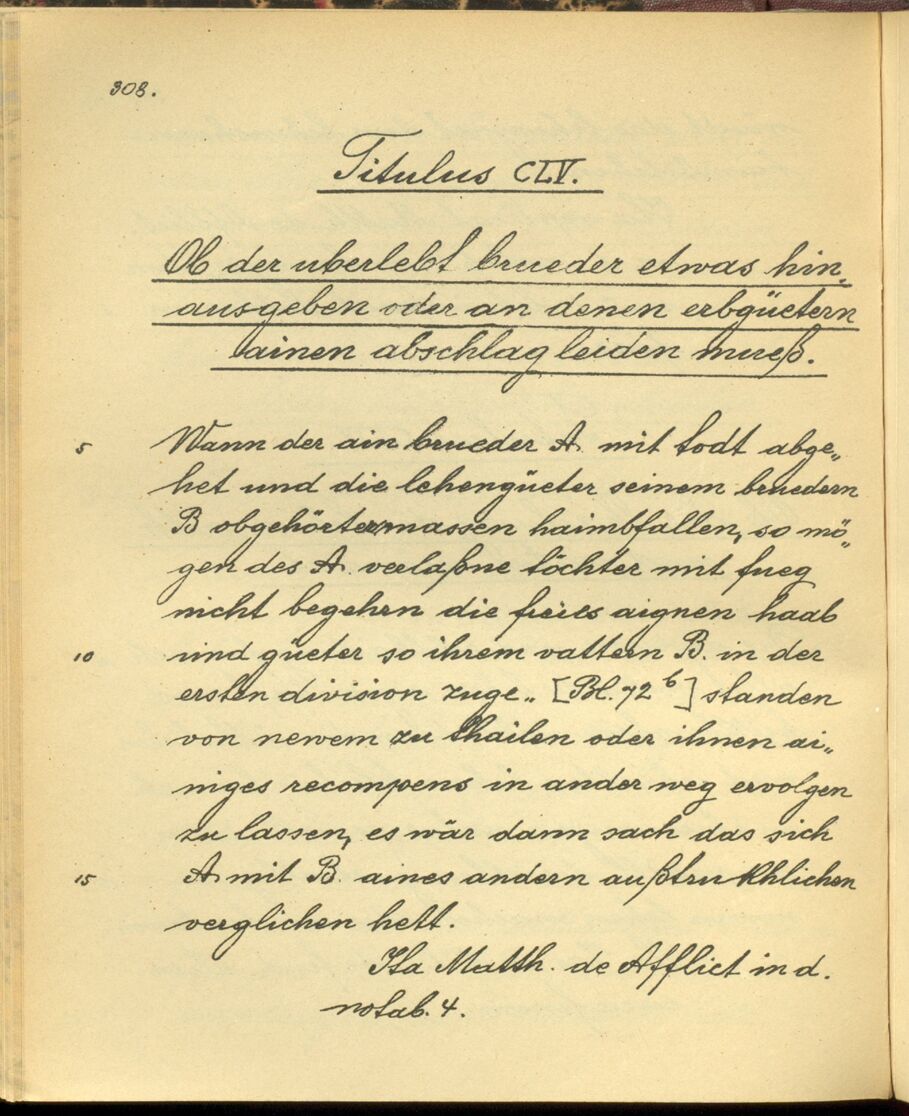 303.
Titulus CLV.
Ob der uberlebt brueder etwas hin„
ausgeben oder an denen erbgüetern
ainen abschlag leiden mueß.
5 Wann der ain brueder A. mit todt abge„
het und die lehengüeter seinem bruedern
B obgehörtermassen haimbfallen, so mö„
gen des A. verlaßne töchter mit fueg
nicht begehrn die freies aignen haab
10 und güeter so ihrem vattern B. in der
ersten division zuge„ [Bl. 72 b] standen
von newem zu thailen oder ihnen ai„
niges recompens in ander weg ervolgen
zu lassen, es wär dann sach das sich
15 A. mit B. aines andern außtrukhlichen
verglichen hett.
Ita Matth. de Afflict in d.
notab. 4.